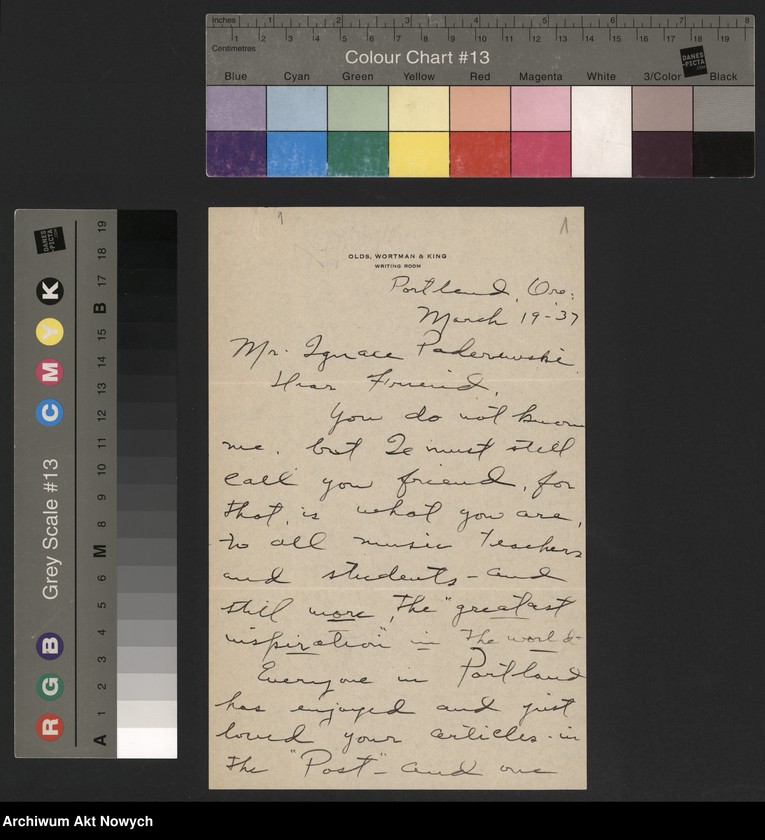 Inches 1 2 3 4 5 6 7 8
Centimetres 1 2 3 4 5 6 7 8 9 10 11 12 13 14 15 16 17 18 19
Colour Chart #13
DANES-PICTA.COM
Blue Cyan Green Yellow Red Magenta White 3/Color Black
Grey Scale #13
DANES-PICTA.COM
R G B C M Y K
A 1 2 3 4 5 6 M 8 9 10 11 12 13 14 15 B 17 18 19
1
1
OLDS, WORTMAN & KING
WRITING ROOM
Portland, Ore:
March 19-37
Mr. Ignace Paderewski
Dear Friend,
You do not know
me. but I must still
call you friend, for
that, is what you are,
to all music teachers
and students - and
still more, the "greatest
inspiration" in the world-
Everyone in Portland
has enjoyed and just
loved your articles - in
the "Post" - and one
Archiwum Akt Nowych